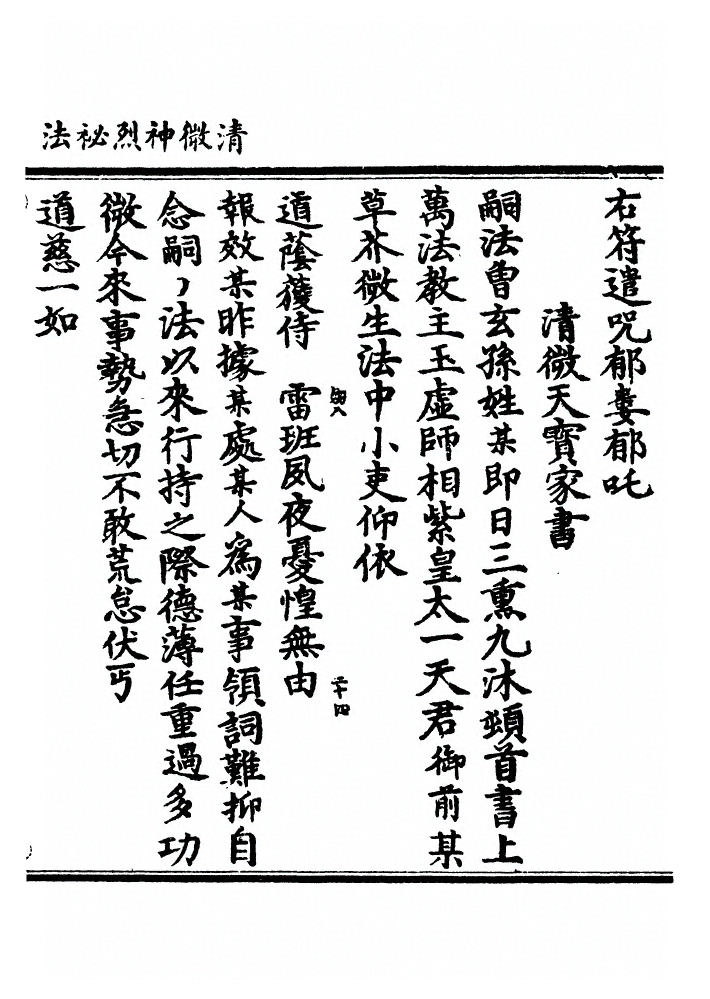 清微神烈祕法
右符遣呪郁婁郁吒
清微天寶家書
嗣法曾玄孫姓某即日三熏九沐頓首書上
萬法教主玉虛師相紫皇太一天君御前某
草芥微生法中小吏仰依
道蔭獲侍 雷班夙夜憂惶無由
二十四
報效某昨據某處某人爲某事領詞難抑自
念嗣丶法以來行持之際德薄任重過多功
微今來事勢急切不敢荒怠伏丐
道慈一如